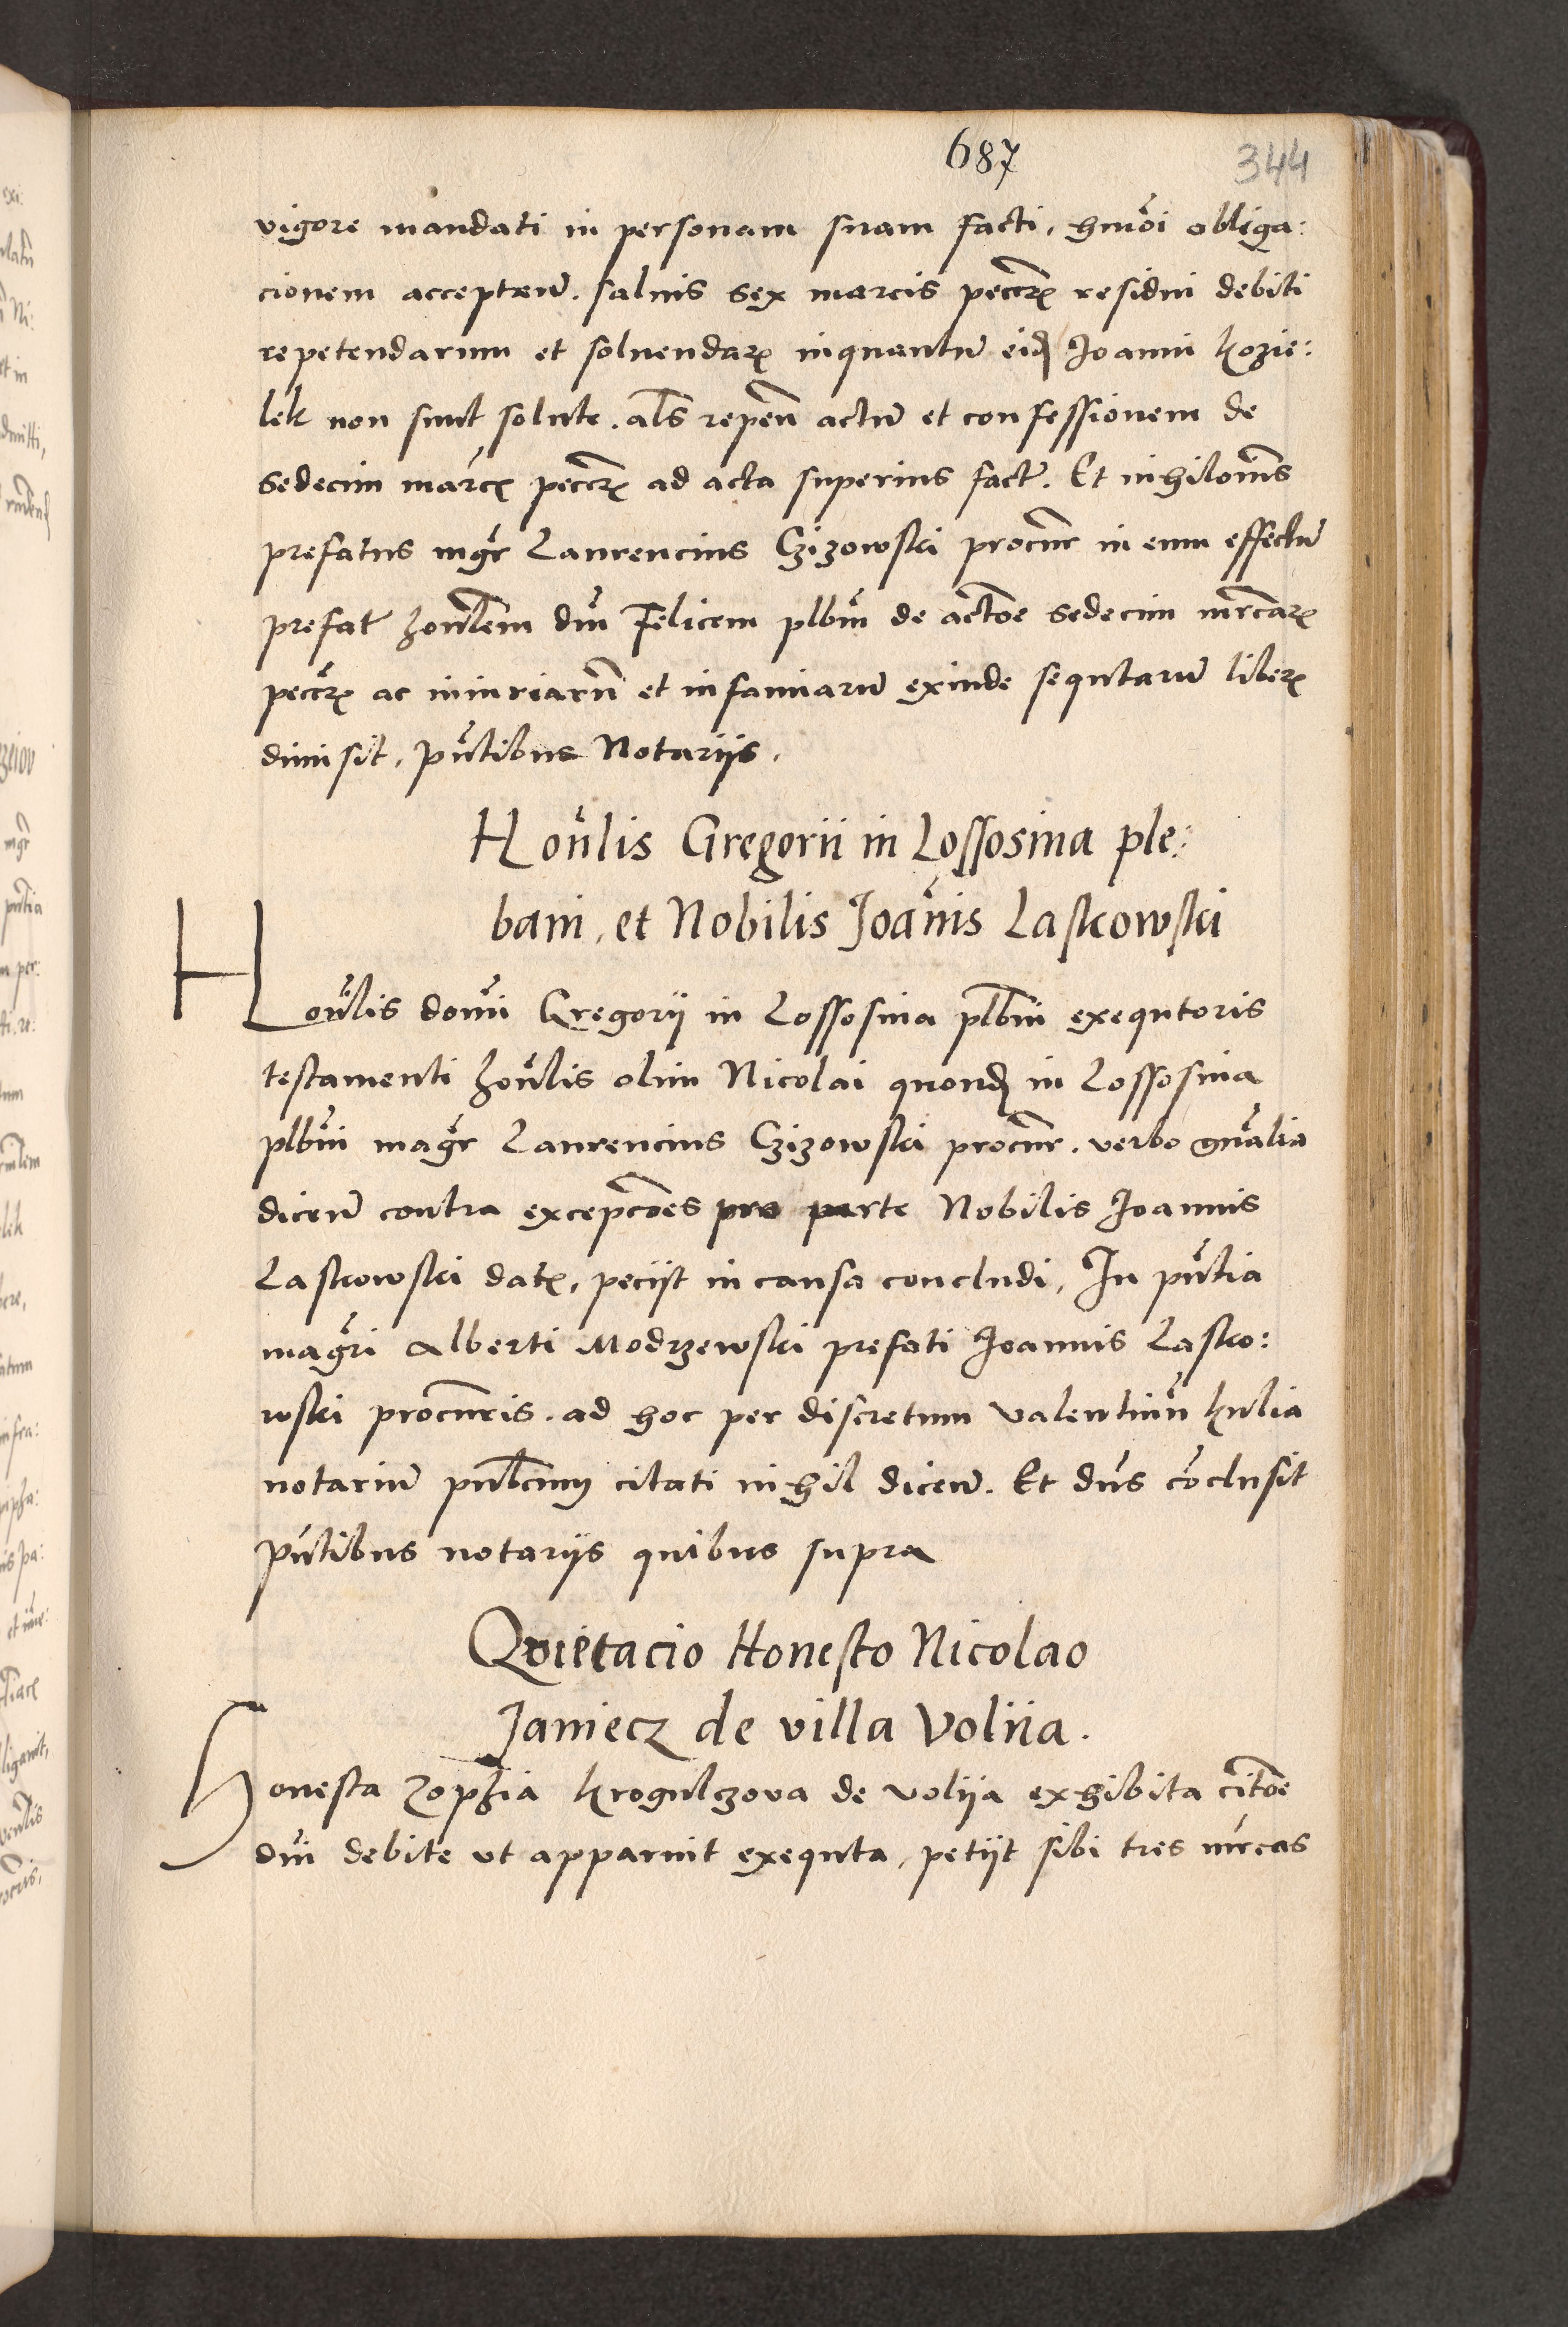 687 344
vigore mandati in personam suam facti, hmōi obliga:
cionem acceptarūt. saluis sex marcis peccrꝫ residui debiti
repetendarum et soluendarꝫ inquantū eidꝫ Joanni Kozie:
lek non sunt solute. als repen̄ actū et confessionem de
sedecim marcꝫ peccrꝫ ad acta superius fact̄. Et nihilomꝰ
prefatus mgr̄ Laurencius Czizowski procur̄ in eum effectū
prefat̄ honlem dn̄m Felicem plbm̄ de actōe sedecim mrcarꝫ
peccrꝫ ac iniuriarū et infamiarū exinde sequtarū liberꝫ
dimisit, pn̄tibus Notariis.
Honīlis Gregorii in Lossosina ple:
bani, et Nobilis Joan̄is Laskowski
Honīlis domi Gregorij in Lossosina plbni exequtoris
testamenti honīlis olim Nicolai quondꝫ in Lossosina
plbni magr̄ Laurencius Czizowski procur̄. verbo gnālia
dicen̄ contra excepcōes pro parte Nobilis Joannis
Laskowski datꝫ, peciit in causa concludi, In pn̄tia
magr̄i Alberti Modrzewski prefati Joannis Lasko:
wski procur̄is. ad hoc per discretum Valentinū Kulia
notariū publicum citati nihil dicen̄. Et dn̄s cōclusit
pn̄tibus notariis quibus supra
Quietacio Honesto Nicolao
Janiecz de villa Voliia.
Honesta Zophia Krogulczova de Volija exhibita citōe
dn̄i debite ut apparuit exequta, petiit sibi tres mrcas